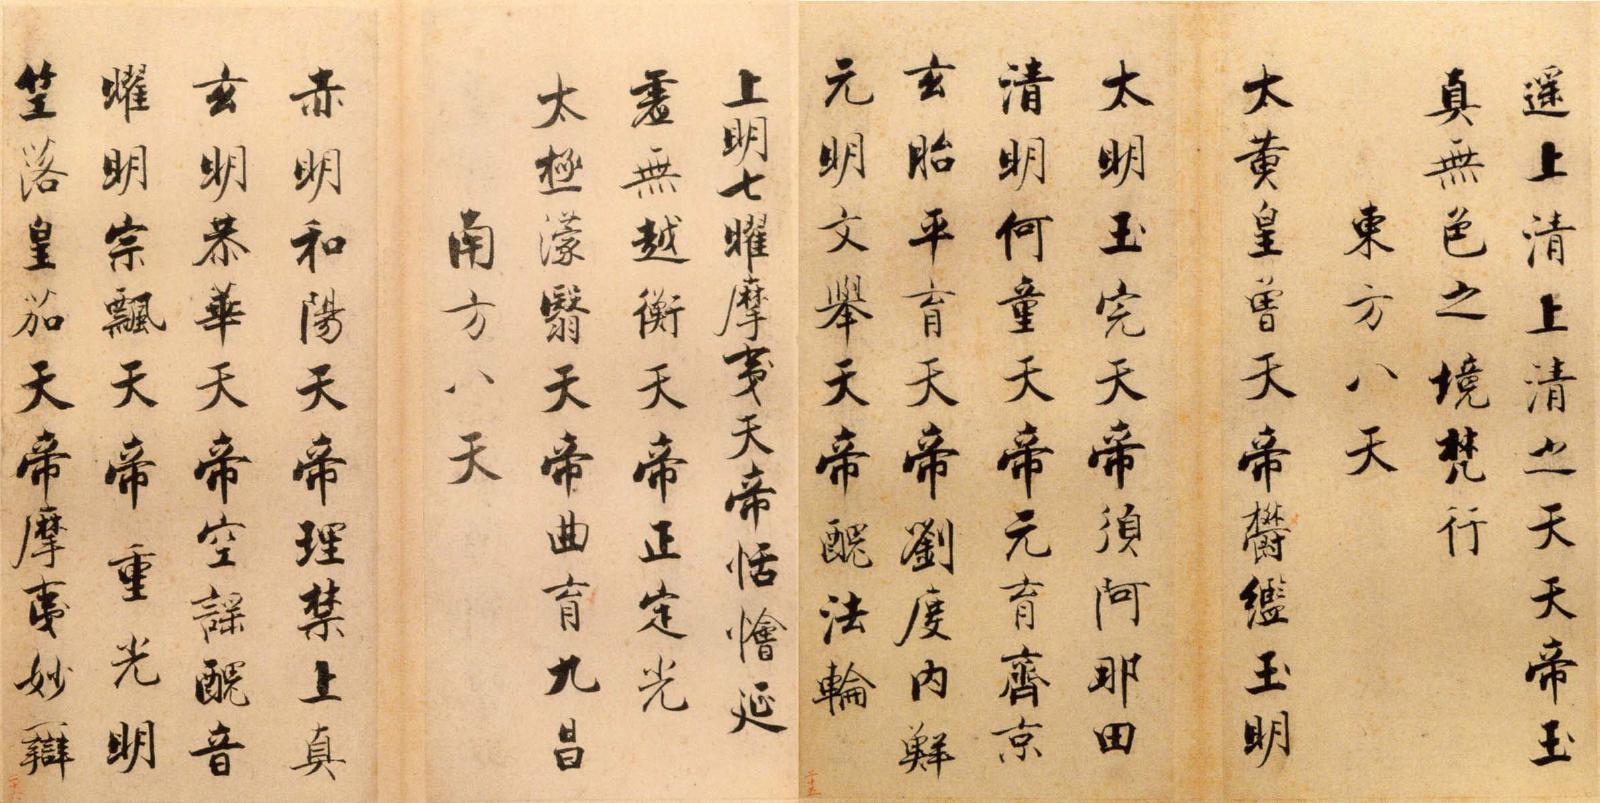 遥上清上清之天天帝玉
真無色之境梵行
東方八天
太黄皇曾天帝欝繿玉明
太明玉完天帝須阿那田
清明何童天帝元育齊京
玄胎平育天帝劉度内鮮
元明文舉天帝醜法輪
上明七曜摩夷天帝恬憺延
虚無越衡天帝正定光
太極濛翳天帝曲育九昌
南方八天
赤明和陽天帝理禁上真
玄明恭華天帝空謡醜音
耀明宗飄天帝重光明
竺落皇笳天帝摩夷妙辯
二十五
二十六